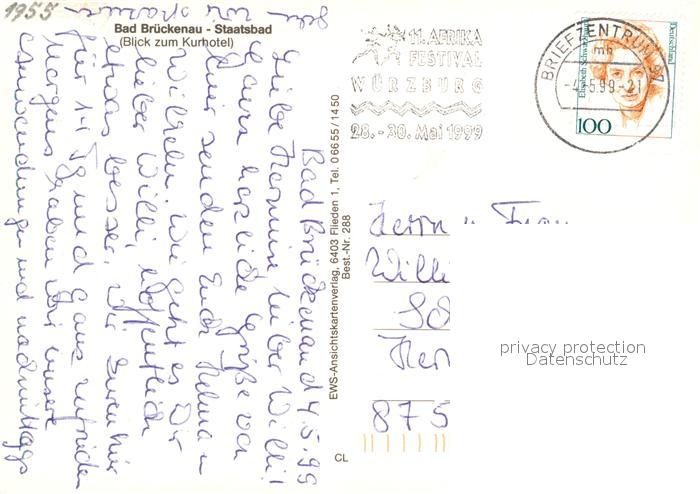 1955
Bad Brückenau - Staatsbad
(Blick zum Kurhotel)
11. AFRIKA
FESTIVAL
WÜRZBURG
28.-30. Mai 1999
BRIEFZENTRUM 97
mb
-4.-5.99-21
Elisabeth Schwarzhaupt
Deutschland
100
Bad Brückenau d 4.5.99
Liebe Hermine lieber Willi!
Ganz herzliche Grüße von
hier senden Euch Helma u
Wilhelm. Wie geht es Dir
lieber Willi, hoffentlich
etwas besser. Wir
für 14 Tg und ganz zufrieden
Morgens haben wir unsere
Anwendungen und nachmittags
gehen wir spazieren
EWS-Ansichtskartenverlag, 6403 Flieden 1, Tel. 0 66 55 / 14 50
Best.-Nr. 288
CL
Herrn u Frau
Willi
Her
875
privacy protection
Datenschutz